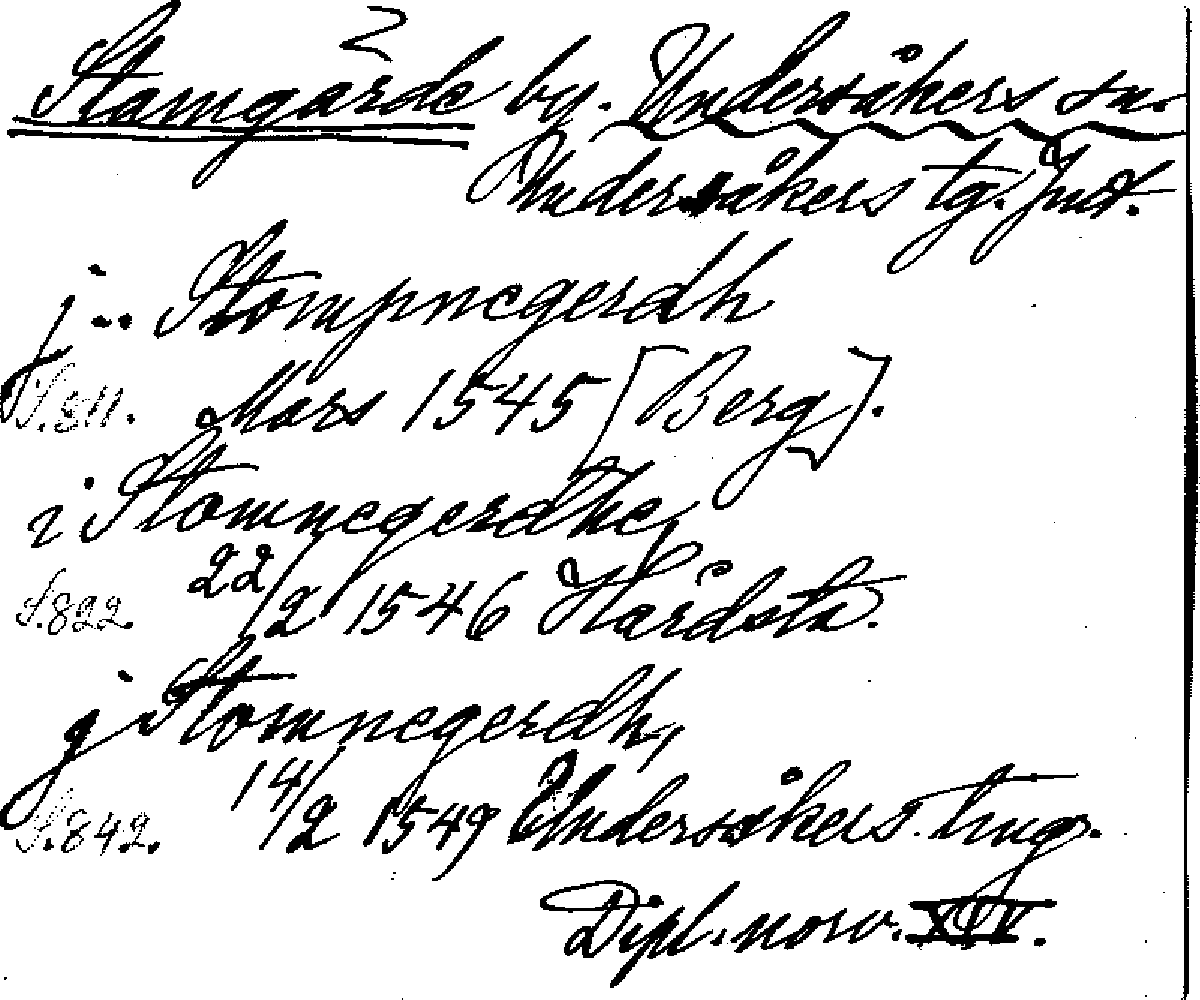 2
Stamgärde by. Undersåkers sn.
Undersåkers tg. Jmt.
j... Stompnegerdh
S. 811. Mars 1545 [Berg].
i Stomnegerdhe,
S. 822. 22/2 1546 Hårdsta.
j Stomnegerdh,
S. 842. 14/2 1549 Undersåkers tingr.
Dipl. norv. XIV.